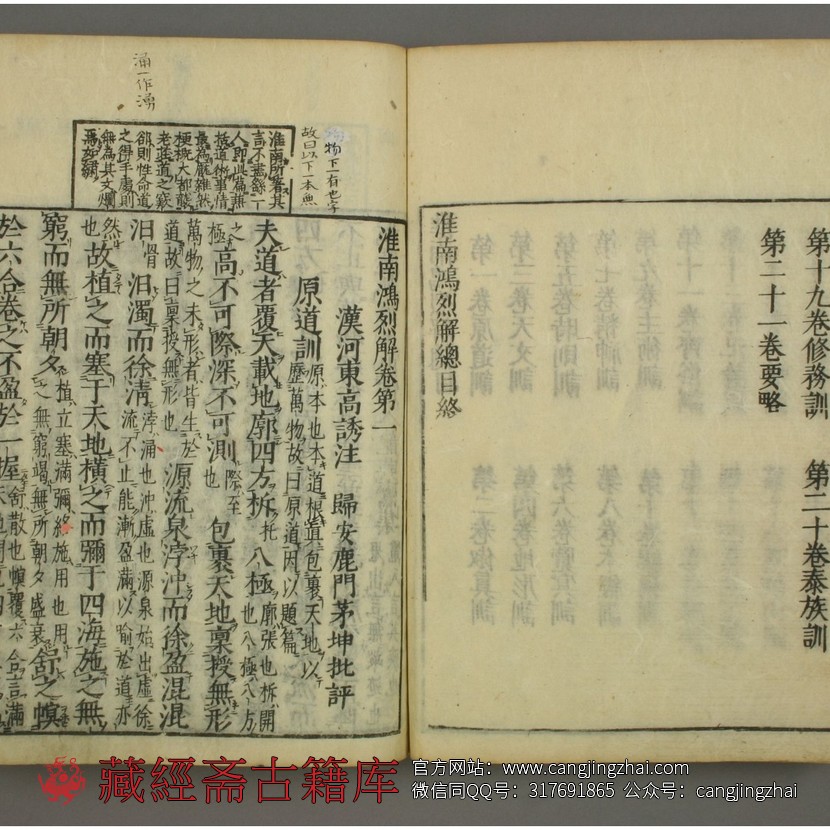 第十九卷修務訓 第二十卷泰族訓
第二十一卷要略
淮南鴻烈解總目終
涌一作湧
物下一有也字
故曰以下一本無
淮南所著其
言不啻餘二十
人即此篇兼
括道術事情
最為龎雜然
梗概大都皷
老莊道之窽
郤則性命道
之得手處則
無為其文爛
焉如錦
淮南鴻烈解卷第一
漢河東高誘注 歸安鹿門茅坤批評
原道訓 原本也本道根真包裹天地以歷萬物故曰原道因以題篇
夫道者覆天載地廓四方柝八極 廓張也柝開也八極八方
之極
高不可際深不可測 際至也
包裹天地稟授無形
萬物之未形者皆生於道故曰稟授無形也
源流泉浡沖而徐盈混混
汩汩濁而徐清 浡涌也沖虛也源泉始出虛徐流不止能漸盈滿以喻於道亦然
也
故植之而塞于天地橫之而彌于四海施之無
窮而無所朝夕 植立塞滿彌終施用也用之無窮竭無所朝夕盛衰
舒之幎
於六合卷之不盈於一握 舒散也幎覆六合言滿
藏經斋古籍库
官方网站：www.cangjingzhai.com
微信同QQ号：317691865 公众号：cangjingzhai